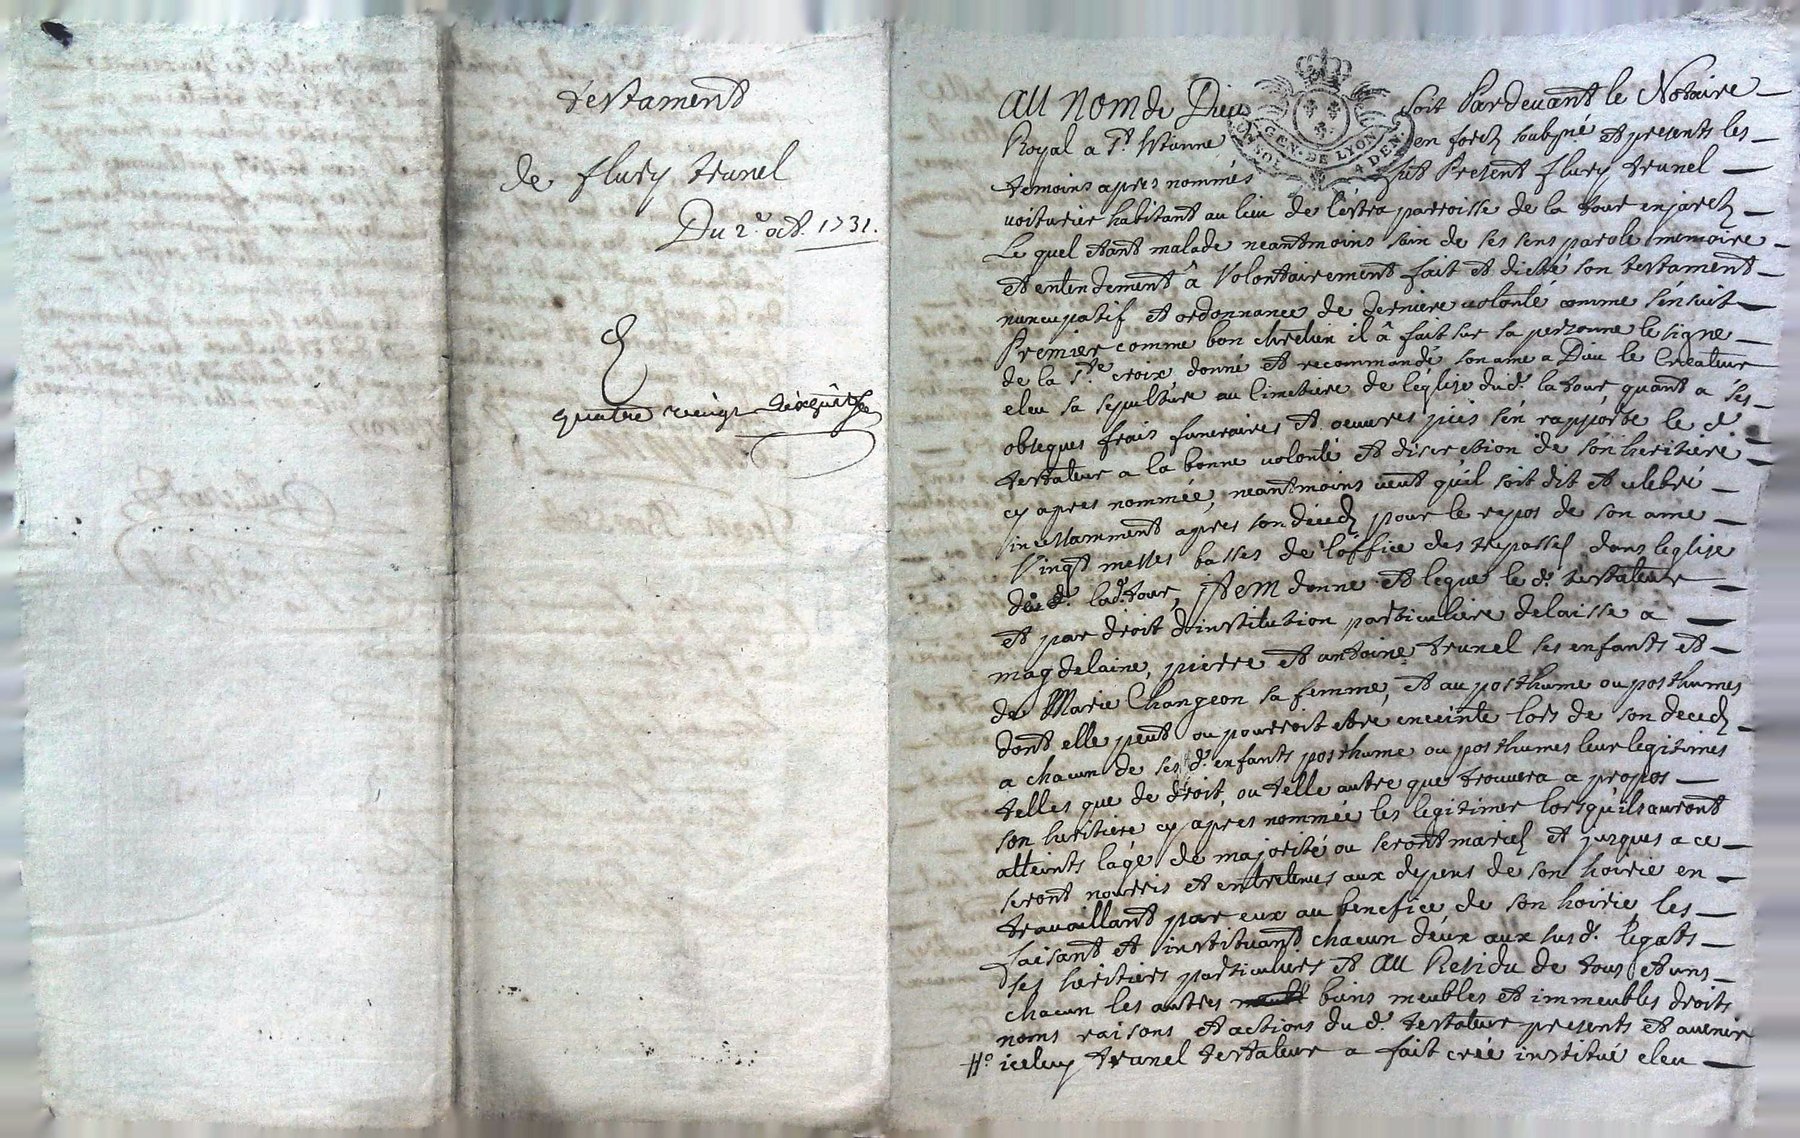 testament
de flury trunel
Du 2e. oct. 1731.
quatre vingt dixhuit
Au Nom de Dieu soit Pardevant le Notaire
Royal a St. Etienne en forez subsné et presents les
temoins apres nommés fut Present flury trunel
voiturier habitant au lieu de l'estra parroisse de la tour en jarez
Lequel etant malade neantmoins sain de ses sens parole memoire
et entendement â Volontairement fait et dicté son testament
nuncupatif et ordonnance de derniere volonté comme s'ensuit
Premier comme bon chretien il â fait sur sa personne le signe
de la Ste croix donné et recommandé son ame a Dieu le Createur
eleu sa sepulture au Cimetiere de l'eglise dud. la tour quant a ses
obseques frais funeraires et oeuvres pies s'en rapporte le d.
testateur a la bonne volonté et discretion de son heritiere
cy apres nommée, neantmoins veut qu'il soit dit et celebré
incessamment apres son decedz pour le repos de son ame
Vingt messes basses de l'office des trepassés dans leglise
dud. lad. tour, Item donne et legue le d. testateur
et par droit d'institution particuliere delaisse a
magdelaine, pierre et antoine trunel ses enfants et
de Marie Changeon sa femme, et au posthume ou posthumes
dont elle peut ou pourroit etre enceinte lors de son decedz
a chacun de ses d. enfants posthume ou posthumes leur legitimes
telles que de droit, ou telle autre que trouvera a propos
son heritiere cy apres nommée les legitimer lorsqu'ils auront
atteints l'age de majorité ou seront mariez et jusques a ce
seront nourris et entretenus aux depens de son hoirie en
travaillant par eux au benefice de son hoirie les
faisant et instituant chacun deux aux susd. legats
ses heritiers particuliers et Au Residu de tous et uns
chacun les autres biens meubles et immeubles droits
noms raisons et actions du d. testateur presents et avenir
Ho. iceluy trunel testateur a fait creé institué eleu